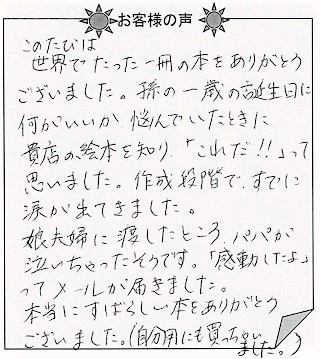 お客様の声
このたびは
世界でたった一冊の本をありがとう
ございました。孫の一歳の誕生日に
何がいいか、悩んでいたときに
貴店の絵本を知り、「これだ!!」って
思いました。作成段階で、すでに
涙が出てきました。
娘夫婦に渡したところ、パパが
泣いちゃったそうです。「感動したよ」
ってメールが届きました。
本当にすばらしい本をありがとう
ございました。(自分用にも買っちゃい
ました。)